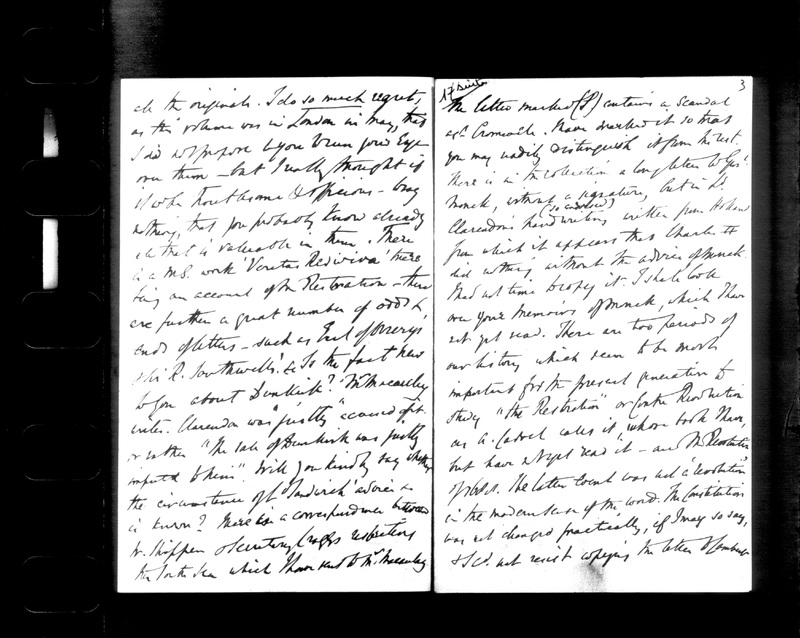 all the originals. I do so much regret,
as this volume was in London in May, that
I did not propose to you to run your Eye
over them – but I really thought it
would be troublesome & officious – being
nothing, that you probably know already
all that is valuable in them. There
is a M.S. work 'Veritas Rediviva' there
being an account of the Restoration – there
are further a great number of odds &
ends of letters – such as Earl of Orrery's
& Sir R. Southwell's. Is the fact new
to you about Dunkirk? Mr Macaulay
writes. Clarendon was "justly" accused of it
or rather "the sale of Dunkirk was justly
imputed to him". Will you kindly say whether
the circumstance of Ld Sandwich's advice
is known? There is a correspondence between
Mr. Shippen & Secretary Craggs respecting
the South Sea which I have sent to Mr Macaulay
3
The letter marked (P) contains a scandal
agt Cromwell. I have marked it so that
you may readily distinguish it from the rest.
There is in the collection a long letter to Genl
Monck, without a signature, but in Ld.
(so endorsed)
Clarendon's handwriting written from
from which it appears that Charles II
did nothing without the advice of Monck.
I had not time to copy it. I shall look
over your Memoirs of Monck, which I have
not yet read. There are two periods of
our history which seem to be most
important for the present generation to
study "the Restoration" or Contre Revolution
as A. Carrel calls it, whose book I have,
but have not yet read it – and the Revolution
of 1688. The latter event was not a 'revolution'
in the modern sense of the word. The Constitution
was not changed practically, if I may so say,
& I cd. not resist copying the letter of